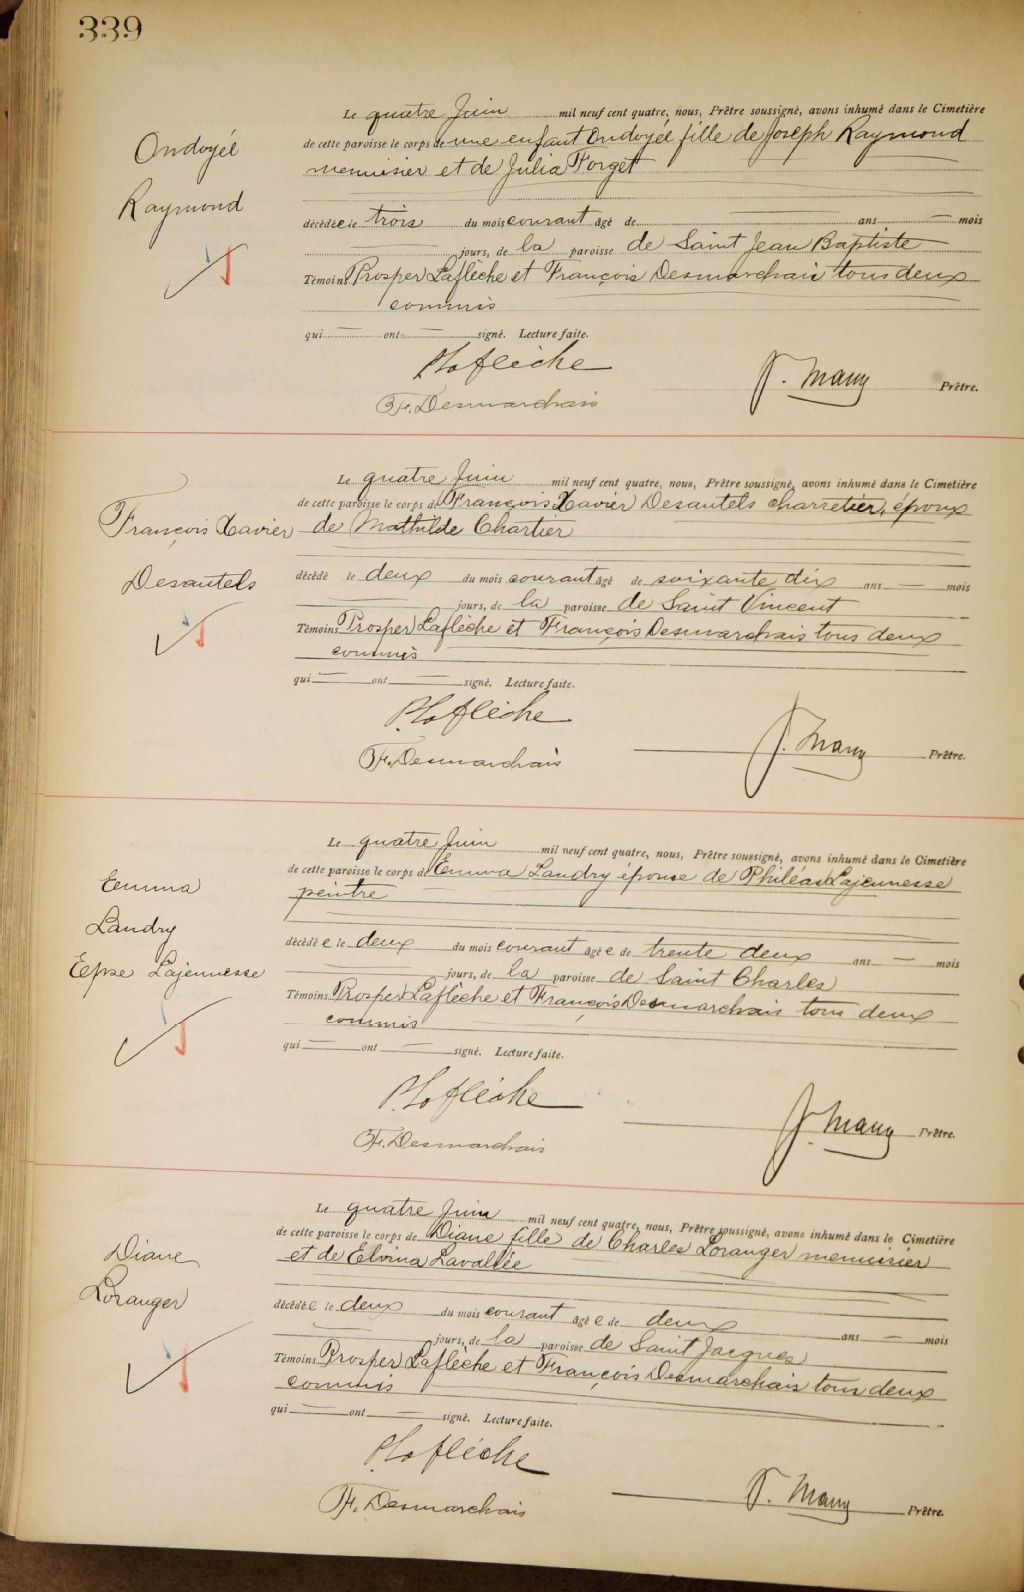 339
Ondoyél
Raymond
Le quatre Juin mil neuf cent quatre, nous, Prêtre soussigné, avons inhumé dans le Cimetière
de cette paroisse le corps de une enfant Ondoyél fille de Joseph Raymond
menuisier et de Julia Forget
décédée le trois du mois courant âgé de ans mois
jours, de la paroisse de Saint Jean Baptiste
Témoins Prosper Laflèche et François Desmarchais tous deux
commis
qui ont signé. Lecture faite.
P. Laflèche
J. Many Prêtre.
F. Desmarchais
François Xavier
Desautels
Le quatre Juin mil neuf cent quatre, nous, Prêtre soussigné, avons inhumé dans le Cimetière
de cette paroisse le corps de François Xavier Desautels charretier, époux
de Mathilde Chartier
décédé le deux du mois courant âgé de soixante dix ans mois
jours, de la paroisse de Saint Vincent
Témoins Prosper Laflèche et François Desmarchais tous deux
commis
qui ont signé. Lecture faite.
P. Laflèche
J. Many Prêtre.
F. Desmarchais
Emma
Landry
Epse Lajeunesse
Le quatre Juin mil neuf cent quatre, nous, Prêtre soussigné, avons inhumé dans le Cimetière
de cette paroisse le corps de Emma Landry épouse de Philéas Lajeunesse
peintre
décédée le deux du mois courant âgée de trente deux ans mois
jours, de la paroisse de Saint Charles
Témoins Prosper Laflèche et François Desmarchais tous deux
commis
qui ont signé. Lecture faite.
P. Laflèche
J. Many Prêtre.
F. Desmarchais
Diane
Loranger
Le quatre Juin mil neuf cent quatre, nous, Prêtre soussigné, avons inhumé dans le Cimetière
de cette paroisse le corps de Diane fille de Charles Loranger menuisier
et de Elvina Lavallée
décédée le deux du mois courant âgée de deux ans mois
jours, de la paroisse de Saint Jacques
Témoins Prosper Laflèche et François Desmarchais tous deux
commis
qui ont signé. Lecture faite.
P. Laflèche
J. Many Prêtre.
F. Desmarchais